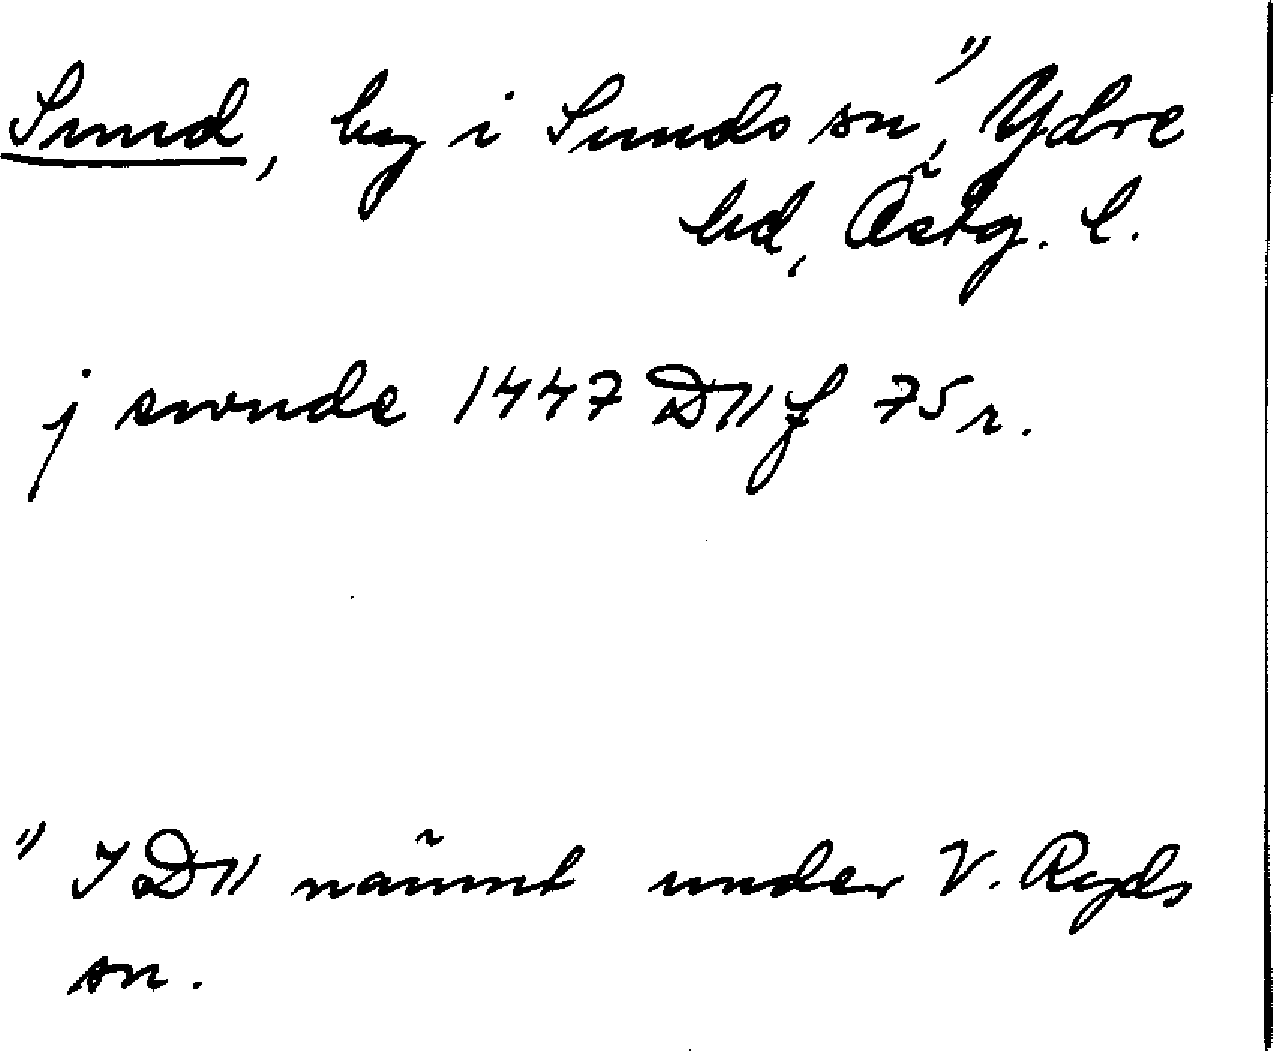 Sund, by i Sunds sn,¹⁾ Ydre
hd, Östg. l.
j swnde 1447 D11 f 75r.
¹⁾ I D11 nämnt under V. Ryds
sn.